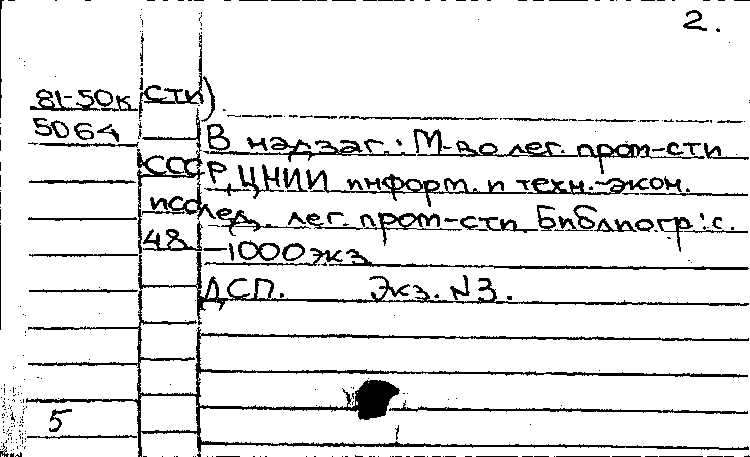 2.
81-50к сти).
5064 В надзаг.: М-во лег. пром-сти
СССР, ЦНИИ информ. и техн.-экон.
исслед. лег. пром-сти. Библиогр.: с.
48 —1000 экз.
ДСП. Экз. №3.
5